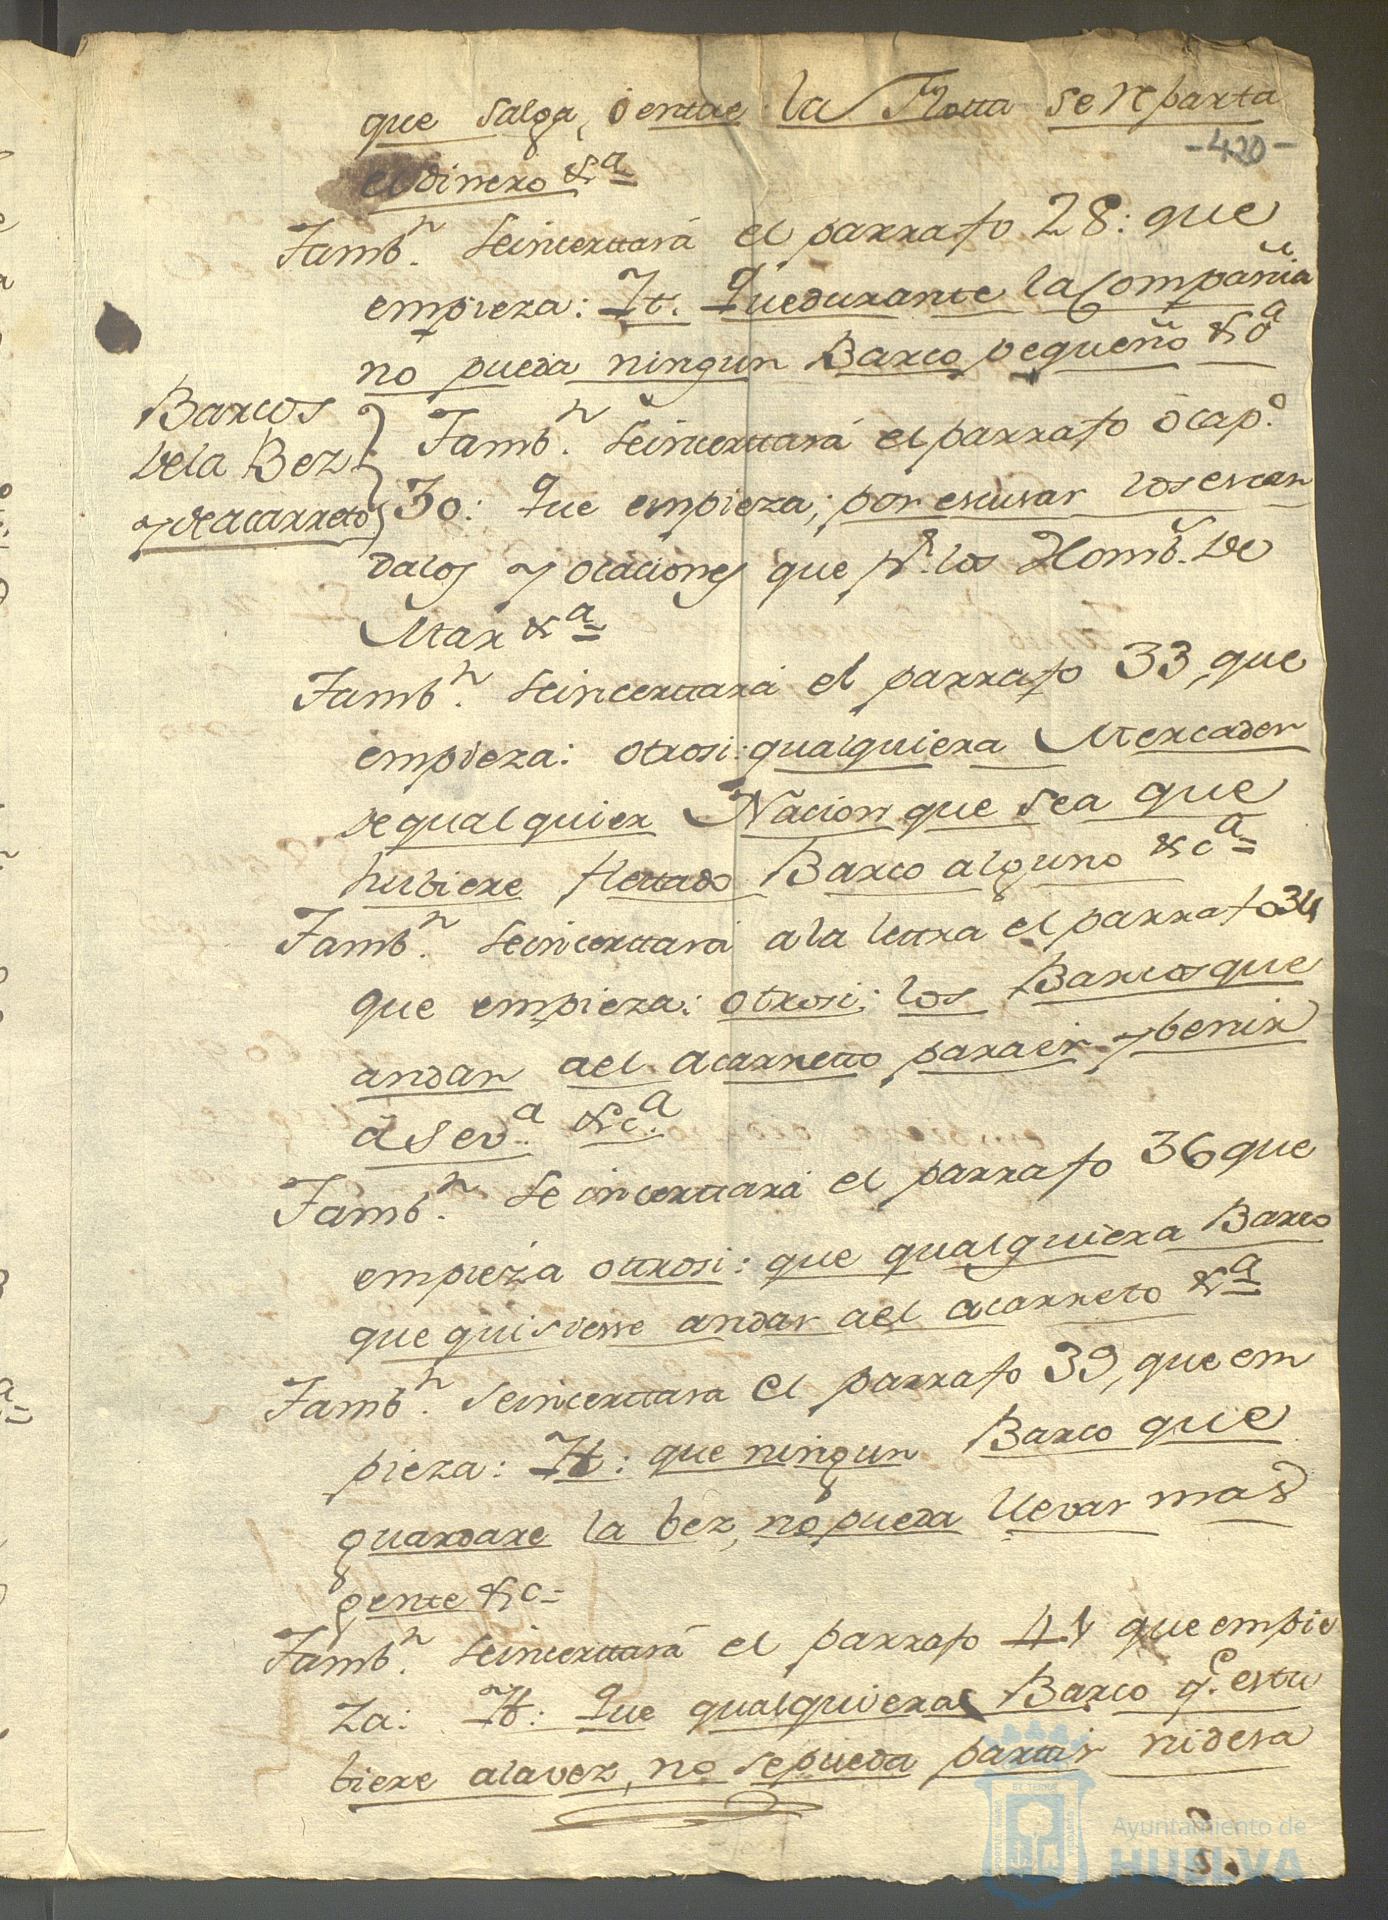 que salga, o entre la Flotta se reparta
-420-
el dinero &ª
Tambⁿ. se incerttará el parrafo 28: que
empieza: It. Que durante la Compañia
no pueda ningun Barco pequeño &ª
Barcos
de la Bez
y de acarreto
Tambⁿ. se incerttará el parrafo ò cap.º
30: que empieza; por escusar los escan
dalos y ocaciones que pr. los Homb.s de
Mar &ª
Tambⁿ. se incerttará el parrafo 33, que
empieza: otrosi: qualquiera Mercader
de qualquier Nacion que sea que
hubiere flettado Barco alguno &cª
Tambⁿ. se incerttará a la lettra el parrafo 34
que empieza: otrosi: los Barcos que
andan ael acarretto para ir y benir
à Sevª. &cª
Tambⁿ. se incerttará el parrafo 36 que
empieza ottrosi: que qualquiera Barco
que quisiesse andar ael acarreto &ª
Tambⁿ. se incerttara el parrafo 39, que em
pieza: It: que ningun Barco que
guardare la bez, no pueda llevar mas
gente &c
Tambⁿ. se incerttará el parrafo 41 que empie
za: It: Que qualquiera Barco q.e estu
biere a la vez, no se pueda parttir ni desa
Ayuntamiento de
HUELVA